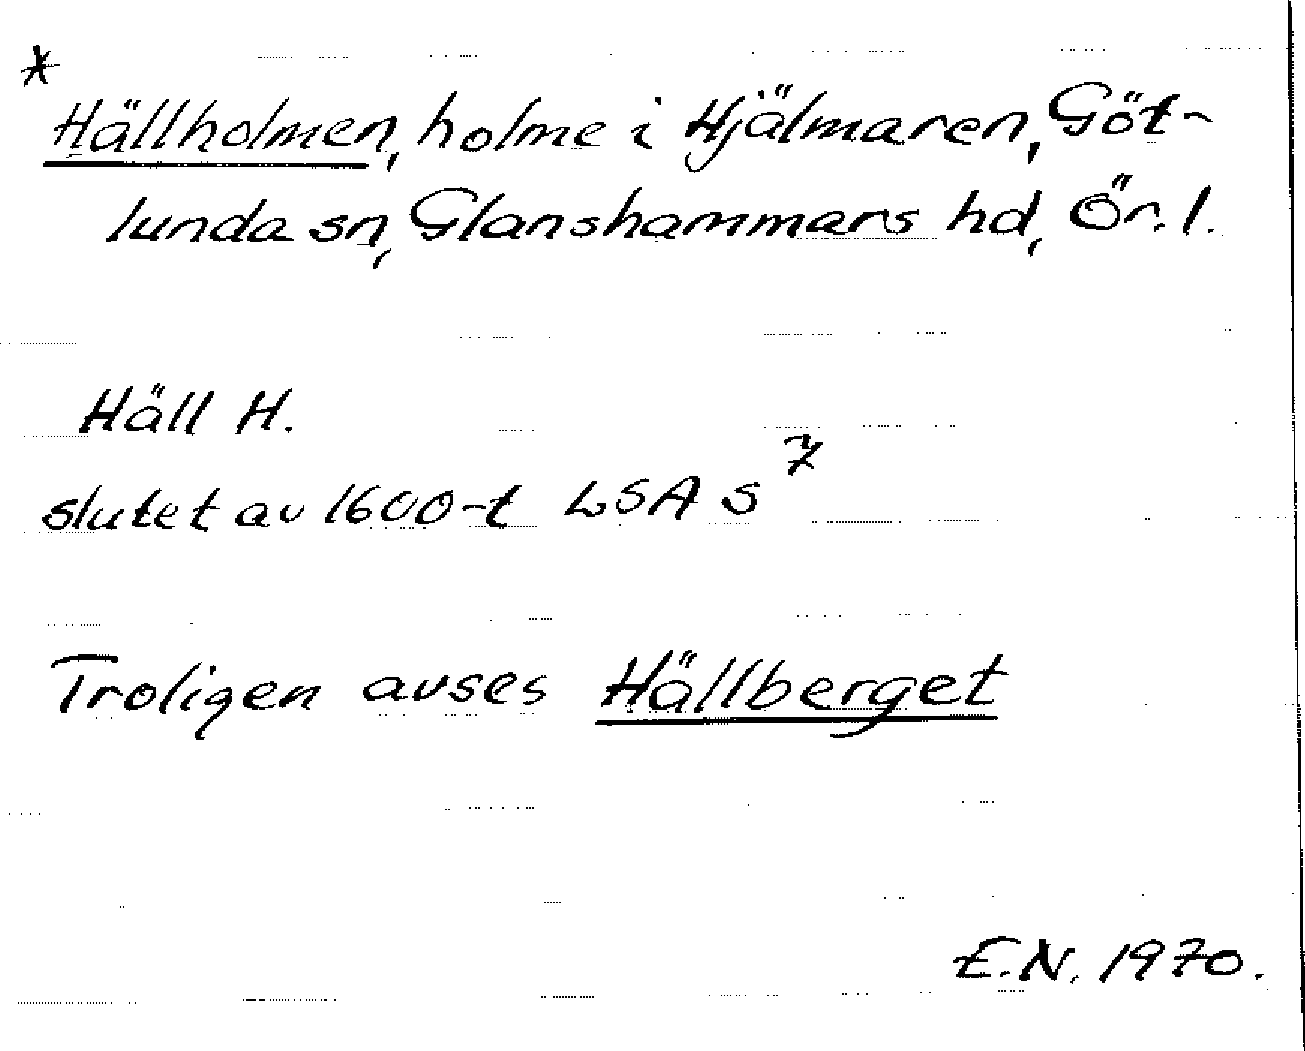 *
Hällholmen, holme i Hjälmaren, Göt-
lunda sn, Glanshammars hd, Ör. l.
Häll H.
slutet av 1600-t LSA S 7
Troligen avses Hällberget
E.N. 1970.